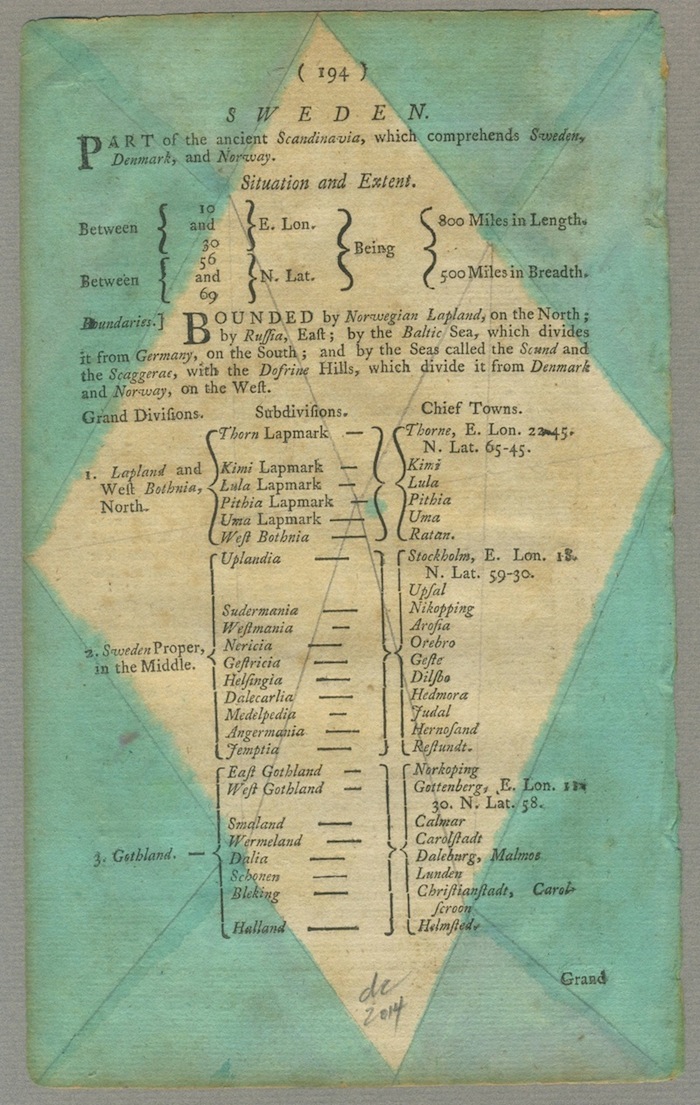 ( 194 )
S W E D E N.
PART of the ancient Scandinavia, which comprehends Sweden,
Denmark, and Norway.
Situation and Extent.
Between { 10 and 30 } E. Lon. } Being { 800 Miles in Length.
Between { 56 and 69 } N. Lat. } { 500 Miles in Breadth.
Boundaries.] BOUNDED by Norwegian Lapland, on the North;
by Ruſſia, Eaſt; by the Baltic Sea, which divides
it from Germany, on the South; and by the Seas called the Scund and
the Scaggerac, with the Dofrine Hills, which divide it from Denmark
and Norway, on the Weſt.
Grand Diviſions. Subdiviſions. Chief Towns.
1. Lapland and
Weſt Bothnia,
North.
Thorn Lapmark — Thorne, E. Lon. 22-45.
N. Lat. 65-45.
Kimi Lapmark — Kimi
Lula Lapmark — Lula
Pithia Lapmark — Pithia
Uma Lapmark — Uma
Weſt Bothnia — Ratan.
2. Sweden Proper,
in the Middle.
Uplandia — Stockholm, E. Lon. 18.
N. Lat. 59-30.
Upſal
Sudermania — Nikopping
Weſtmania — Aroſia
Nericia — Orebro
Geſtricia — Geſte
Helſingia — Dilſbo
Dalecarlia — Hedmora
Medelpedia — Judal
Angermania — Hernoſand
Jemptia — Reſtundt.
3. Gothland. —
Eaſt Gothland — Norkoping
Weſt Gothland — Gottenberg, E. Lon.
30. N. Lat. 58.
Smaland — Calmar
Wermeland — Carolſtadt
Dalia — Daleburg, Malmos
Schonen — Lunden
Bleking — Chriſtianſtadt, Carol-
ſcroon
Halland — Helmſted.
Grand
dc
2014